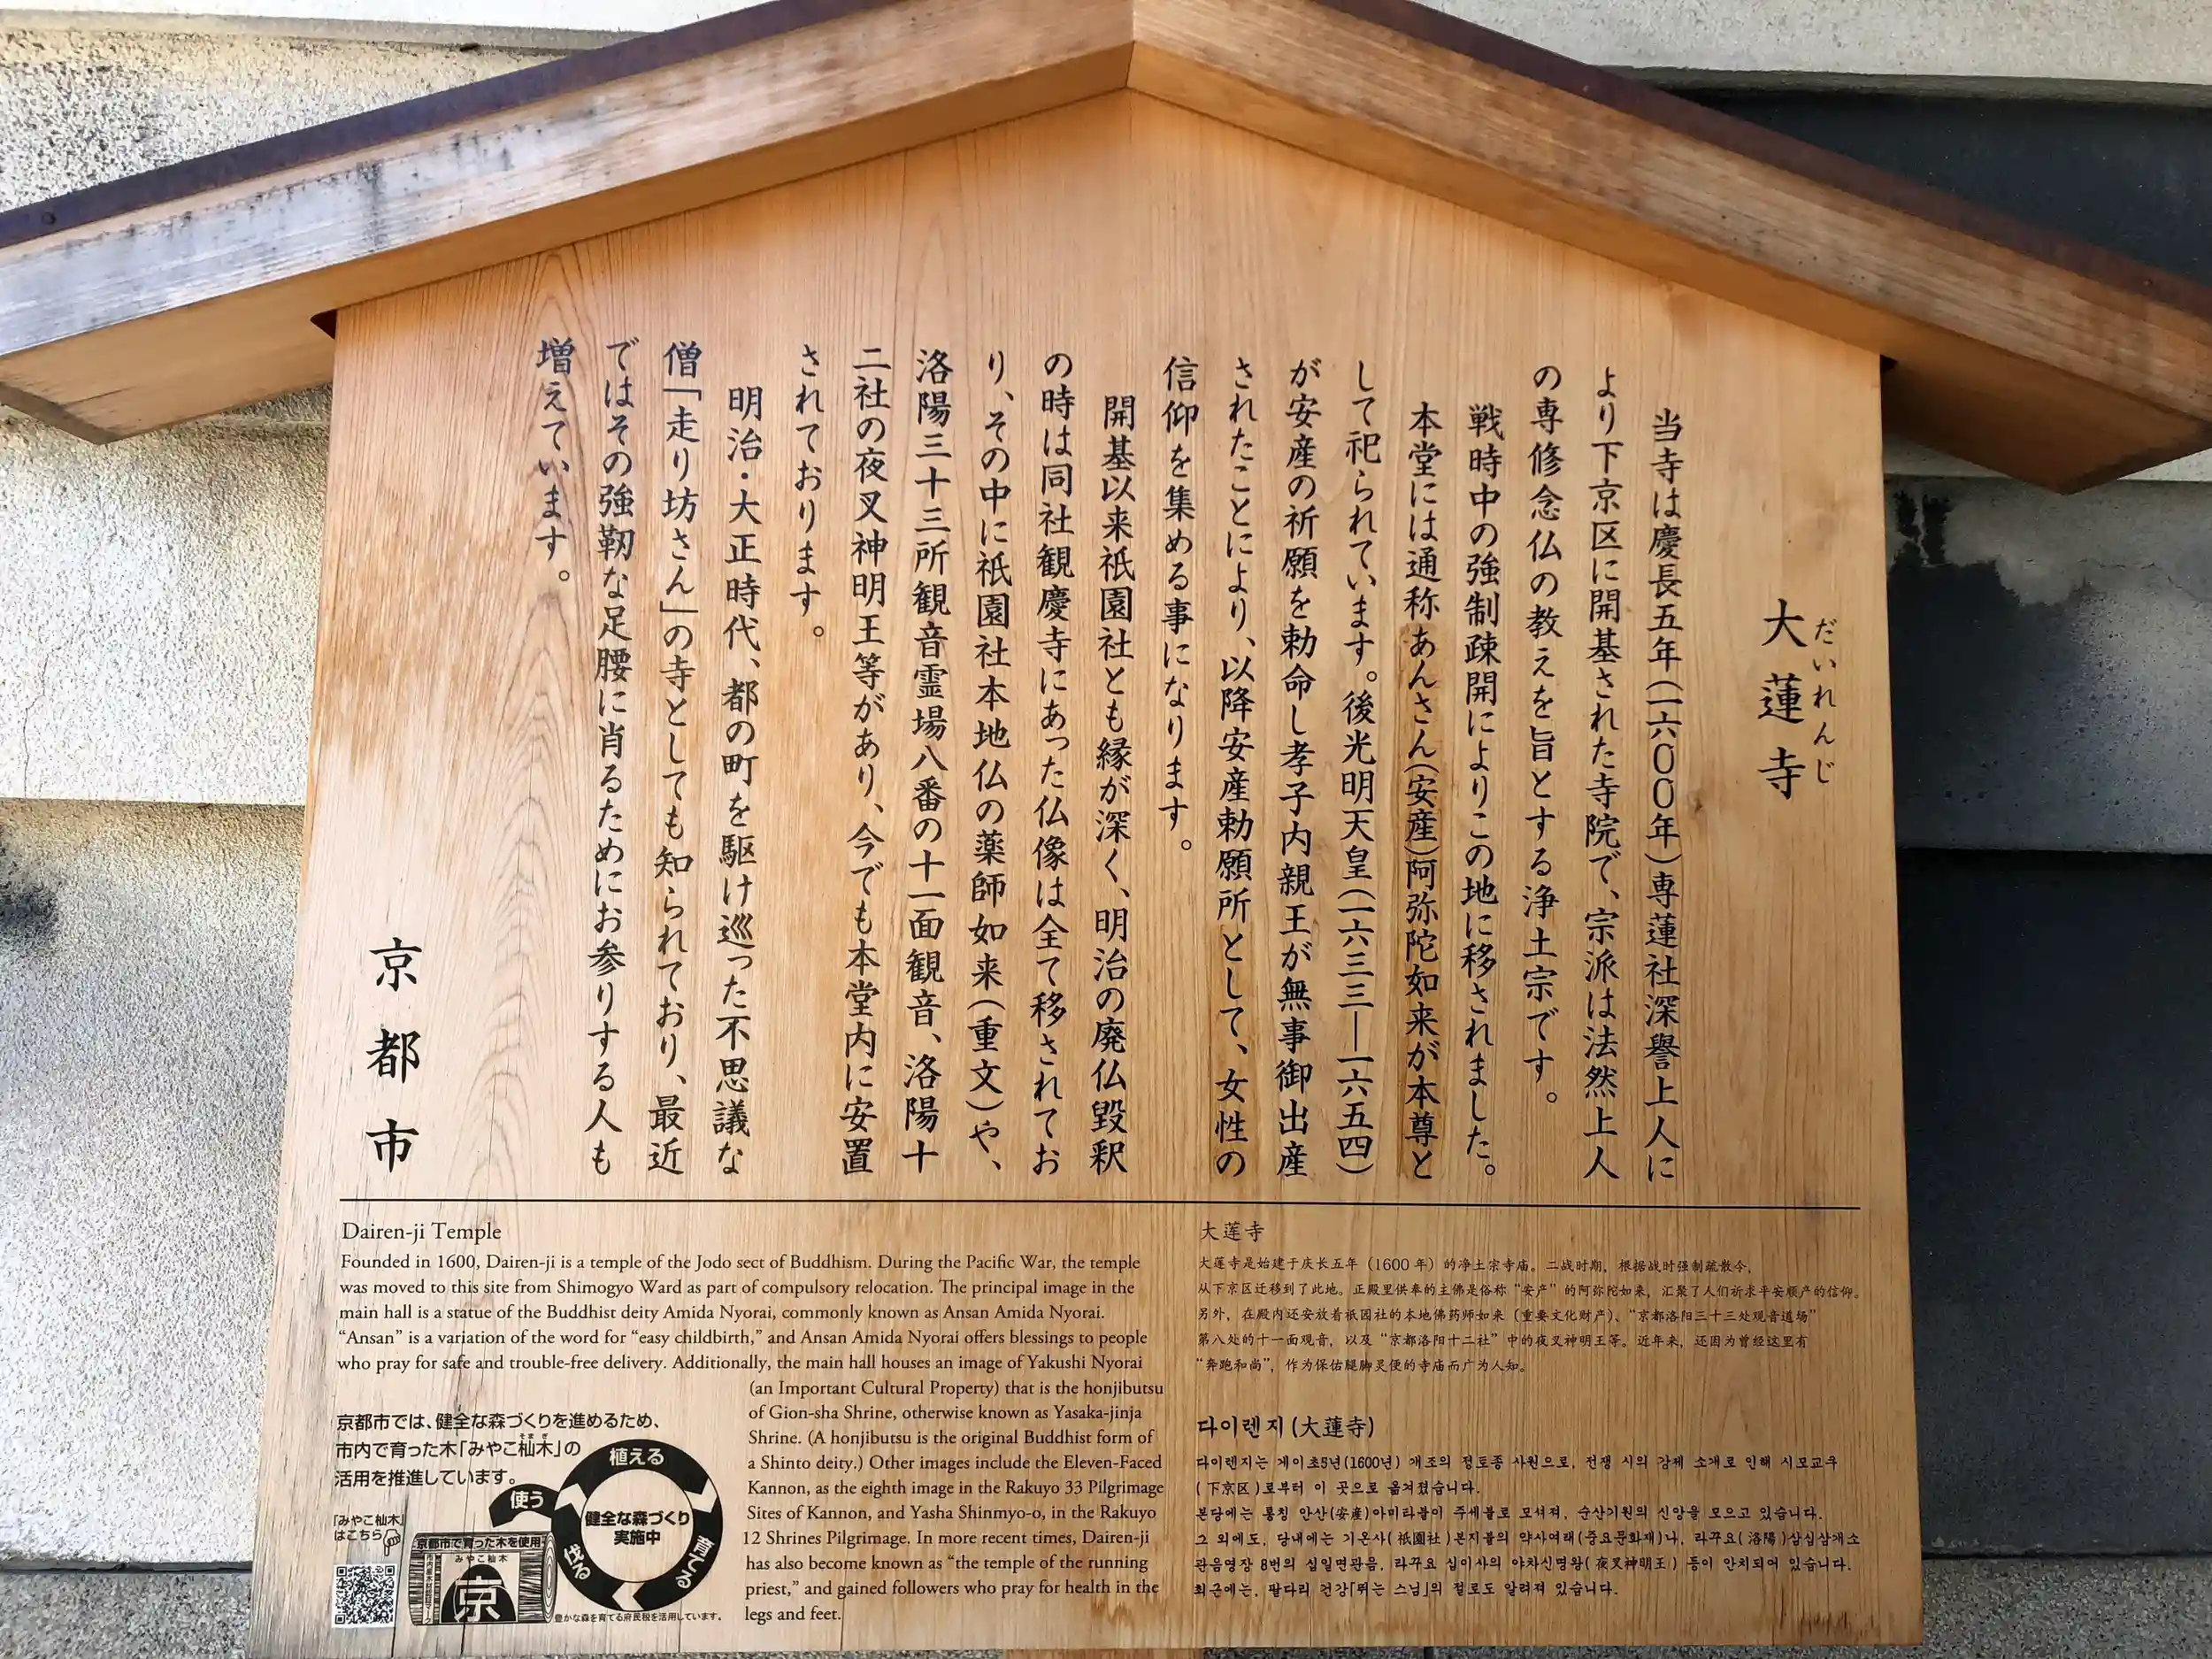 大蓮寺
だいれんじ
当寺は慶長五年(一六〇〇年)専蓮社深誉上人に
より下京区に開基された寺院で、宗派は法然上人
の専修念仏の教えを旨とする浄土宗です。
戦時中の強制疎開によりこの地に移されました。
本堂には通称あんさん(安産)阿弥陀如来が本尊と
して祀られています。後光明天皇(一六三三―一六五四)
が安産の祈願を勅命し孝子内親王が無事御出産
されたことにより、以降安産勅願所として、女性の
信仰を集める事になります。
開基以来祇園社とも縁が深く、明治の廃仏毀釈
の時は同社観慶寺にあった仏像は全て移されてお
り、その中に祇園社本地仏の薬師如来(重文)や、
洛陽三十三所観音霊場八番の十一面観音、洛陽十
二社の夜叉神明王等があり、今でも本堂内に安置
されております。
明治・大正時代、都の町を駆け巡った不思議な
僧「走り坊さん」の寺としても知られており、最近
ではその強靭な足腰に肖るためにお参りする人も
増えています。
京都市
Dairen-ji Temple
Founded in 1600, Dairen-ji is a temple of the Jodo sect of Buddhism. During the Pacific War, the temple
was moved to this site from Shimogyo Ward as part of compulsory relocation. The principal image in the
main hall is a statue of the Buddhist deity Amida Nyorai, commonly known as Ansan Amida Nyorai.
“Ansan” is a variation of the word for “easy childbirth,” and Ansan Amida Nyorai offers blessings to people
who pray for safe and trouble-free delivery. Additionally, the main hall houses an image of Yakushi Nyorai
(an Important Cultural Property) that is the honjibutsu
of Gion-sha Shrine, otherwise known as Yasaka-jinja
Shrine. (A honjibutsu is the original Buddhist form of
a Shinto deity.) Other images include the Eleven-Faced
Kannon, as the eighth image in the Rakuyo 33 Pilgrimage
Sites of Kannon, and Yasha Shinmyo-o, in the Rakuyo
12 Shrines Pilgrimage. In more recent times, Dairen-ji
has also become known as “the temple of the running
priest,” and gained followers who pray for health in the
legs and feet.
京都市では、健全な森づくりを進めるため、
市内で育った木「みやこ杣木」の
そまぎ
活用を推進しています。
「みやこ杣木」
はこちら
植える
育てる
伐る
使う
健全な森づくり
実施中
京都市で育った木を使用
みやこ杣木
京
豊かな森を育てる府民税を活用しています。
大莲寺
大莲寺是始建于庆长五年（1600 年）的净土宗寺庙。二战时期，根据战时强制疏散令，
从下京区迁移到了此地。正殿里供奉的主佛是俗称“安产”的阿弥陀如来，汇聚了人们祈求平安顺产的信仰。
另外，在殿内还安放着祇园社的本地佛药师如来（重要文化财产）、“京都洛阳三十三处观音道场”
第八处的十一面观音，以及“京都洛阳十二社”中的夜叉神明王等。近年来，还因为曾经这里有
“奔跑和尚”，作为保佑腿脚灵便的寺庙而广为人知。
다이렌지(大蓮寺)
다이렌지는 게이초5년(1600년) 개조의 정토종 사원으로, 전쟁 시의 강제 소개로 인해 시모교구
(下京区)로부터 이 곳으로 옮겨졌습니다.
본당에는 통칭 안산(安産)아미타불이 주세불로 모셔져, 순산기원의 신앙을 모으고 있습니다.
그 외에도, 당내에는 기온사(祇園社)본지불의 약사여래(중요문화재)나, 라꾸요(洛陽)삼십삼개소
관음영장 8번의 십일면관음, 라꾸요 십이사의 야차신명왕(夜叉神明王) 등이 안치되어 있습니다.
최근에는, 팔다리 건강「뛰는 스님」의 절로도 알려져 있습니다.